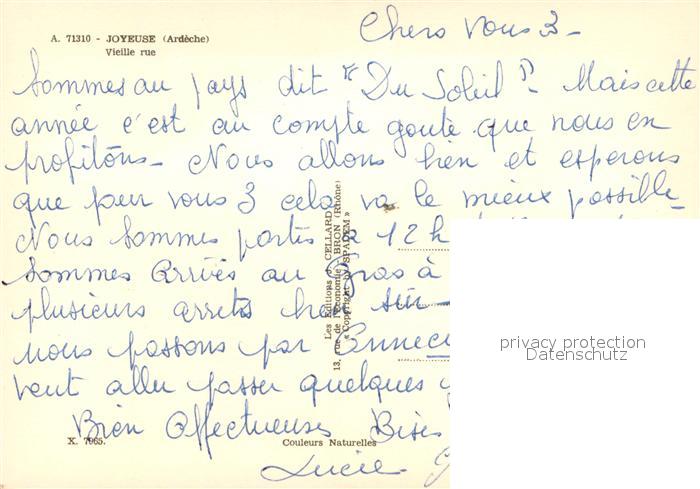 A. 71310 - JOYEUSE (Ardèche)
Vieille rue
Chers vous 3 -
Sommes au pays dit "Du Soleil". Mais cette
année c'est au compte goute que nous en
profitons - Nous allons bien et esperons
que pour vous 3 cela va le mieux possible
Nous sommes partis à 12 h
sommes arrivés au Gras à
plusieurs arrets bien sûr -
nous passons par Annecy
veut aller passer quelques
Bien Affectueuses Bises
Lucie -
X. 7965.
Couleurs Naturelles
Les Editions J. CELLARD
13, rue de l'Economie - BRON (Rhône)
« Copyright by SPADEM »
privacy protection
Datenschutz